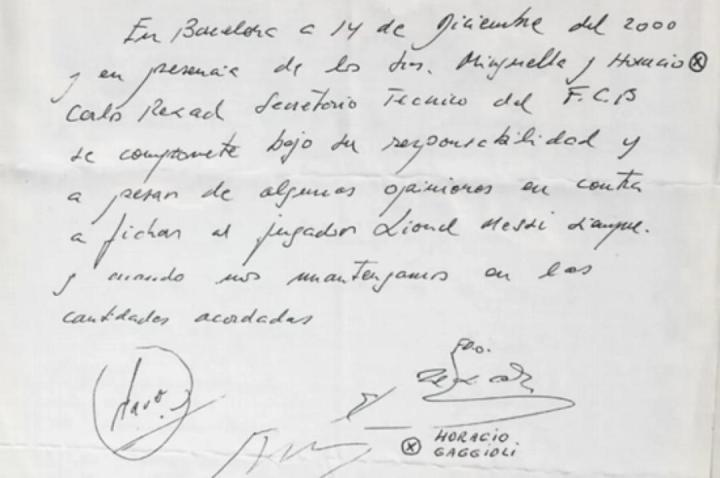 En Barcelona a 14 de Diciembre del 2000
y en presencia de los Srs. Minguella y Horacio ⓧ
Carlos Rexach Secretario Técnico del F.C.B
se compromete bajo su responsabilidad y
a pesar de algunas opiniones en contra
a fichar al jugador Lionel Messi siempre
y cuando nos mantengamos en las
cantidades acordadas
Fdo.
ⓧ HORACIO
GAGGIOLI